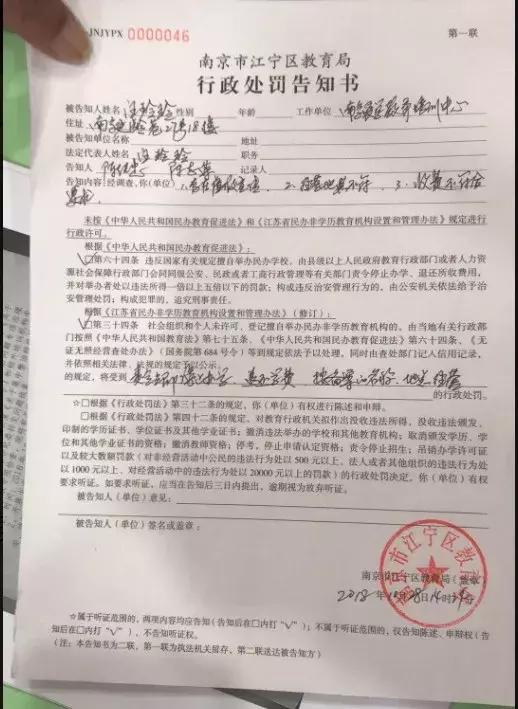 JNJYPX 0000046 第一联
南京市江宁区教育局
行政处罚告知书
被告知人姓名 性别 年龄 工作单位 培训中心
住址
被告知单位名称 地址
法定代表人姓名 职务
告知人 记录人
告知内容:经调查,你(单位) 1、 2、 不符 3、收费不符合
要求
未按《中华人民共和国民办教育促进法》和《江苏省民办非学历教育机构设置和管理办法》规定进行
行政许可。
根据《中华人民共和国民办教育促进法》:
☑第六十四条 违反国家有关规定擅自举办民办学校,由县级以上人民政府教育行政部门或者人力资
源社会保障行政部门会同同级公安、民政或者工商行政管理等有关部门责令停止办学、退还所收费用,
并对举办者处以违法所得一倍以上五倍以下的罚款;构成违反治安管理行为的,由公安机关依法给予治
安管理处罚;构成犯罪的,追究刑事责任。
根据《江苏省民办非学历教育机构设置和管理办法》(修订):
☑第三十四条 社会组织和个人未许可、登记擅自举办民办非学历教育机构的,由当地有关行政部
门按照《中华人民共和国教育法》第七十五条、《中华人民共和国民办教育促进法》第六十四条、《无
证无照经营查处办法》(国务院第684号令)等到规定依法予以处理,同时由查处部门记入信用记录,
并依照相关法律、法规的规定予以公示。
的规定,将受到 责令 停止办学 退还学费 名称、地点 的行政处罚。
☆□根据《行政处罚法》第三十二条的规定,你(单位)有权进行陈述和申辩。
□根据《行政处罚法》第四十二条的规定,对教育行政机关拟作出没收违法所得,没收违法颁发、
印制的学历证书、学位证书及其他学业证书;撤消违法举办的学校和其他教育机构;取消颁发学历、学
位和其他学业证书的资格;撤消教师资格;停考,停止申请认定资格;责令停止招生;吊销办学许可证
以及较大数额罚款(对非经营活动中公民的违法行为处以500元以上、法人或者其他组织的违法行为处
以1000元以上、对经营活动中的违法行为处以20000元以上的罚款)的行政处罚决定,你(单位)有权
要求听证。如要求听证,应当在告知后三日内提出,逾期视为放弃听证。
被告知人(单位)意见:
被告知人(单位)签名或盖章:
南京市江宁区教育局
南京市江宁区教育局(盖章)
2018年 月28日14时 分
☆属于听证范围的,两项内容均应告知(告知后在□内打“√”);不属于听证范围的,仅告知陈述、申辩权(告
知后在□内打“√”),不告知听证权。
(注:本告知书为二联,第一联为执法机关留存,第二联送达被告知方)